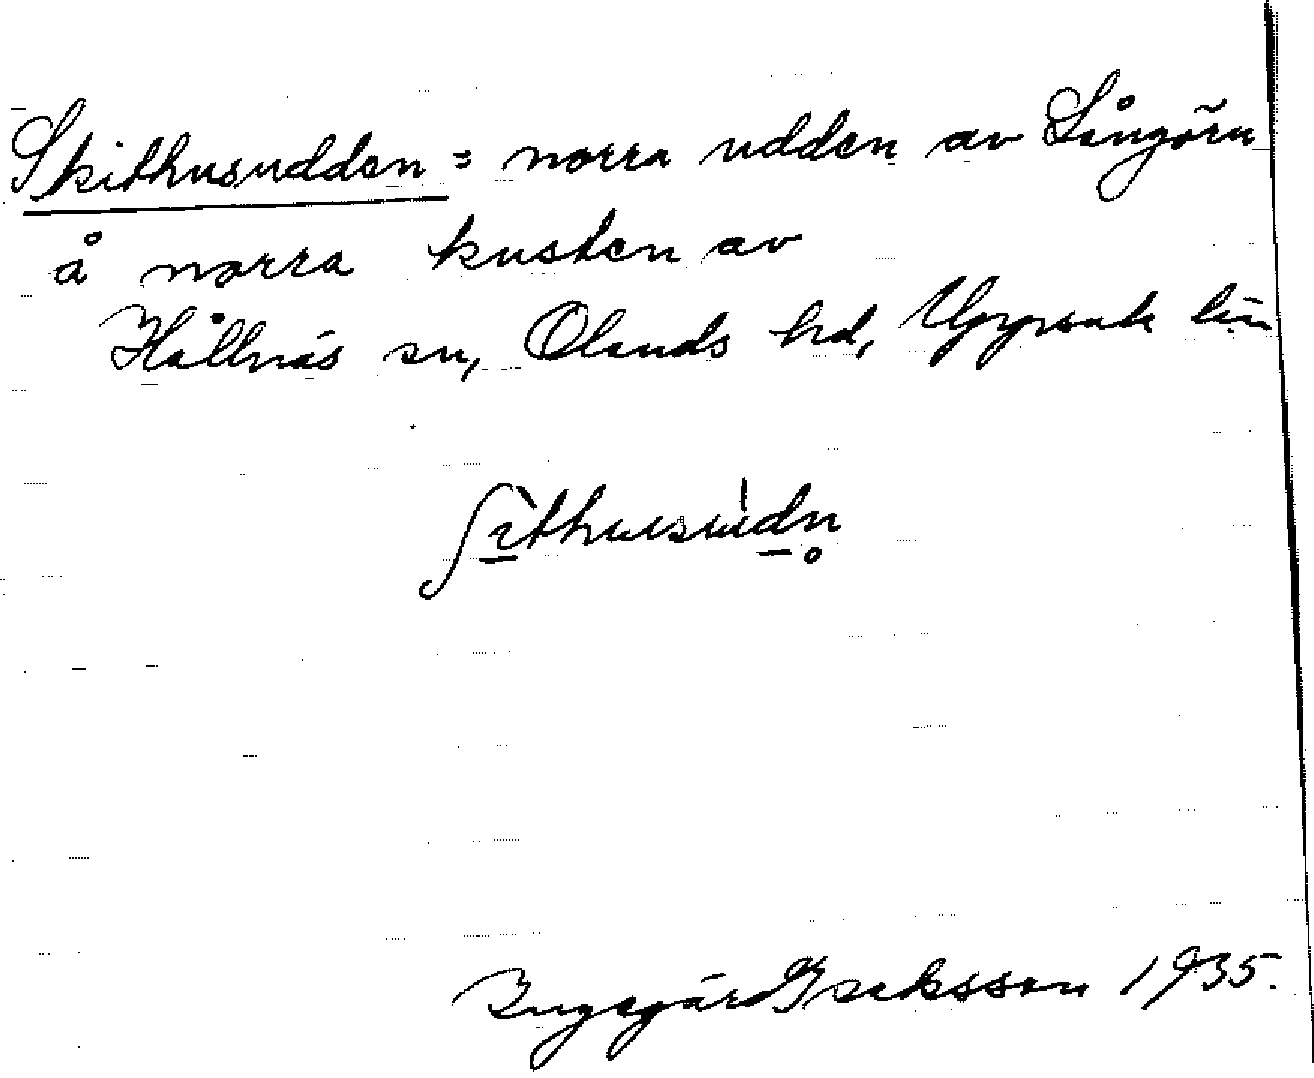 Skithusudden = norra udden av Sångörn
å norra kusten av
Hållnäs sn, Olands hd, Uppsala län
ʃìthusu̍dn̥
Ingegärd Isaksson 1935.